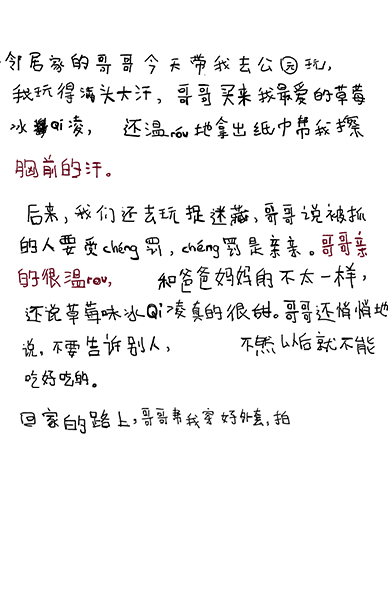 邻居家的哥哥今天带我去公园玩,
我玩得满头大汗,哥哥买来我最爱的草莓
冰Qi凌,还温róu地拿出纸巾帮我擦
胸前的汗。
后来,我们还去玩捉迷藏,哥哥说被抓
的人要受chéng罚,chéng罚是亲亲。哥哥亲
的很温rou,和爸爸妈妈的不太一样,
还说草莓味冰Qi凌真的很甜。哥哥还悄悄地
说,不要告诉别人,不然以后就不能
吃好吃的。
回家的路上,哥哥帮我穿好外套,拍